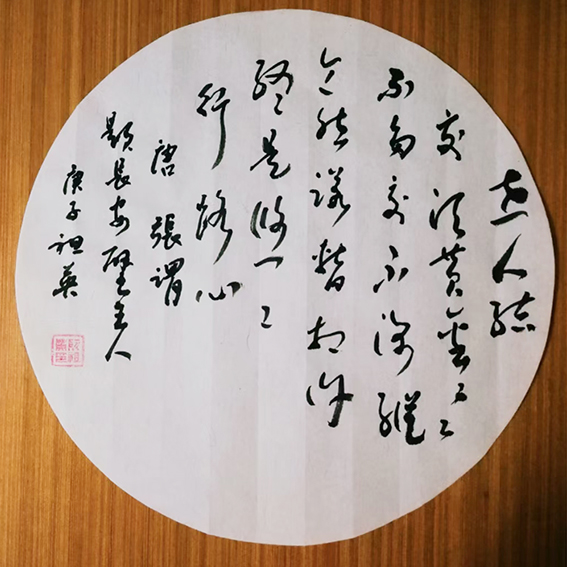 世人結
交須黄金〻〻
不多交不深縱
令然諾暫相許
終是悠〻
行路心
唐 張謂
題長安壁主人
庚子祖英